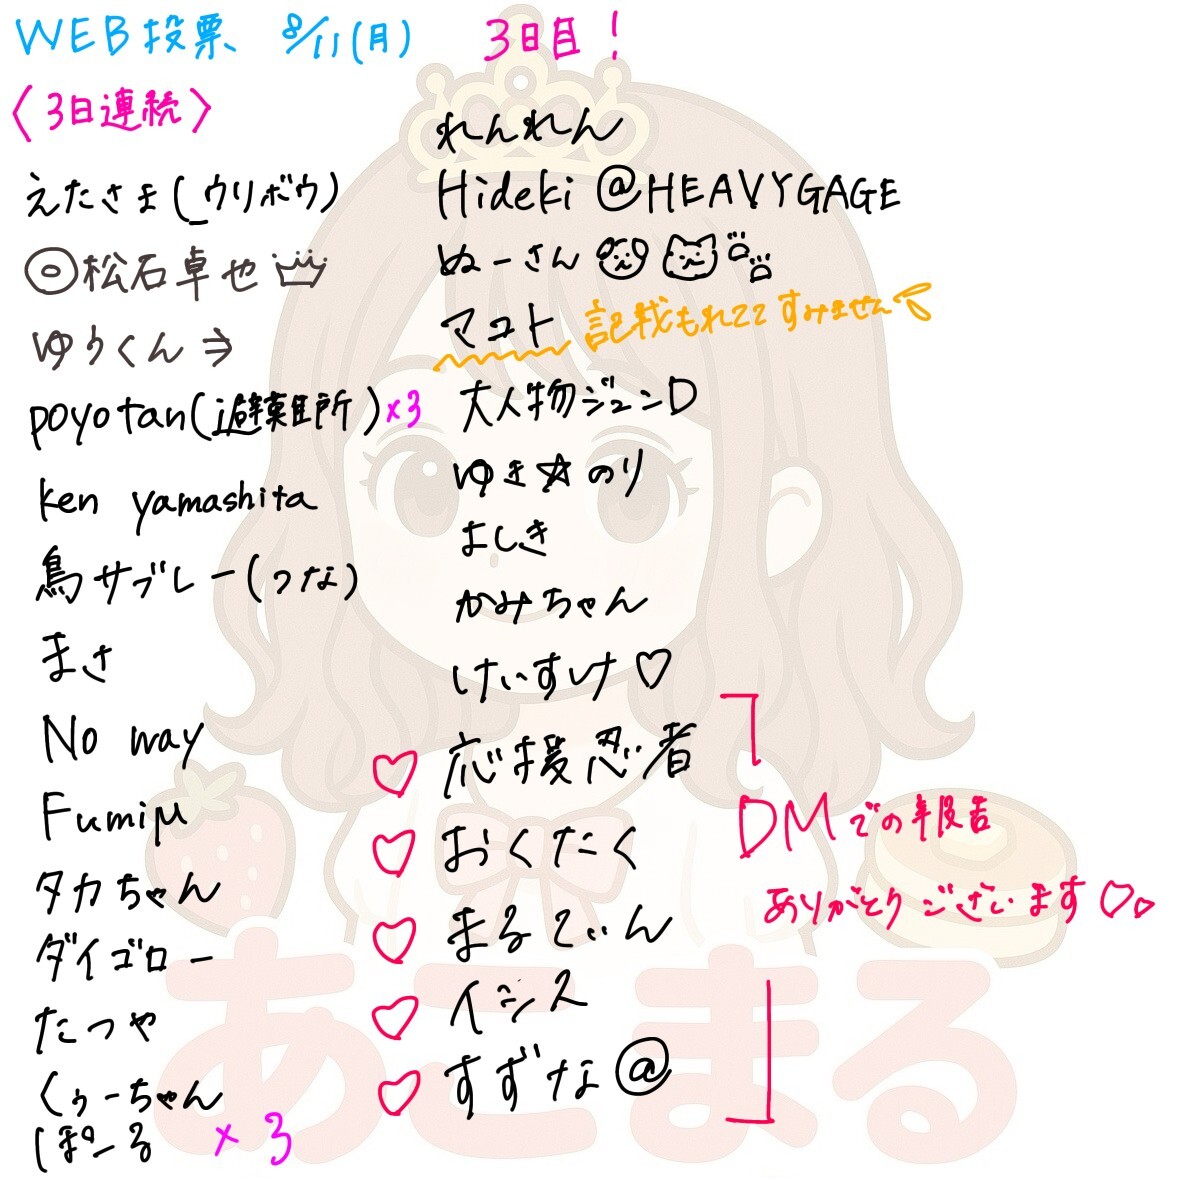 WEB投票 8/11(月) 3日目!
〈3日連続〉
えたさま(_ウリボウ)
◎松石卓也
ゆうくん⇒
poyotan(避難所)×3
ken yamashita
鳥サブレー(つな)
まさ
No way
Fumiμ
タカちゃん
ダイゴロー
たつや
くぅーちゃん
ぽーる ×3
れんれん
Hideki@HEAVYGAGE
ぬーさん
マコト 記載もれてて すみません
大人物ジュンD
ゆき☆のり
よしき
かみちゃん
けいすけ♡
♡ 応援忍者
♡ おくたく
♡ まるてぃん
♡ イシス
♡ すずな@
DMでの報告
ありがとうございます♡♡
あこまる